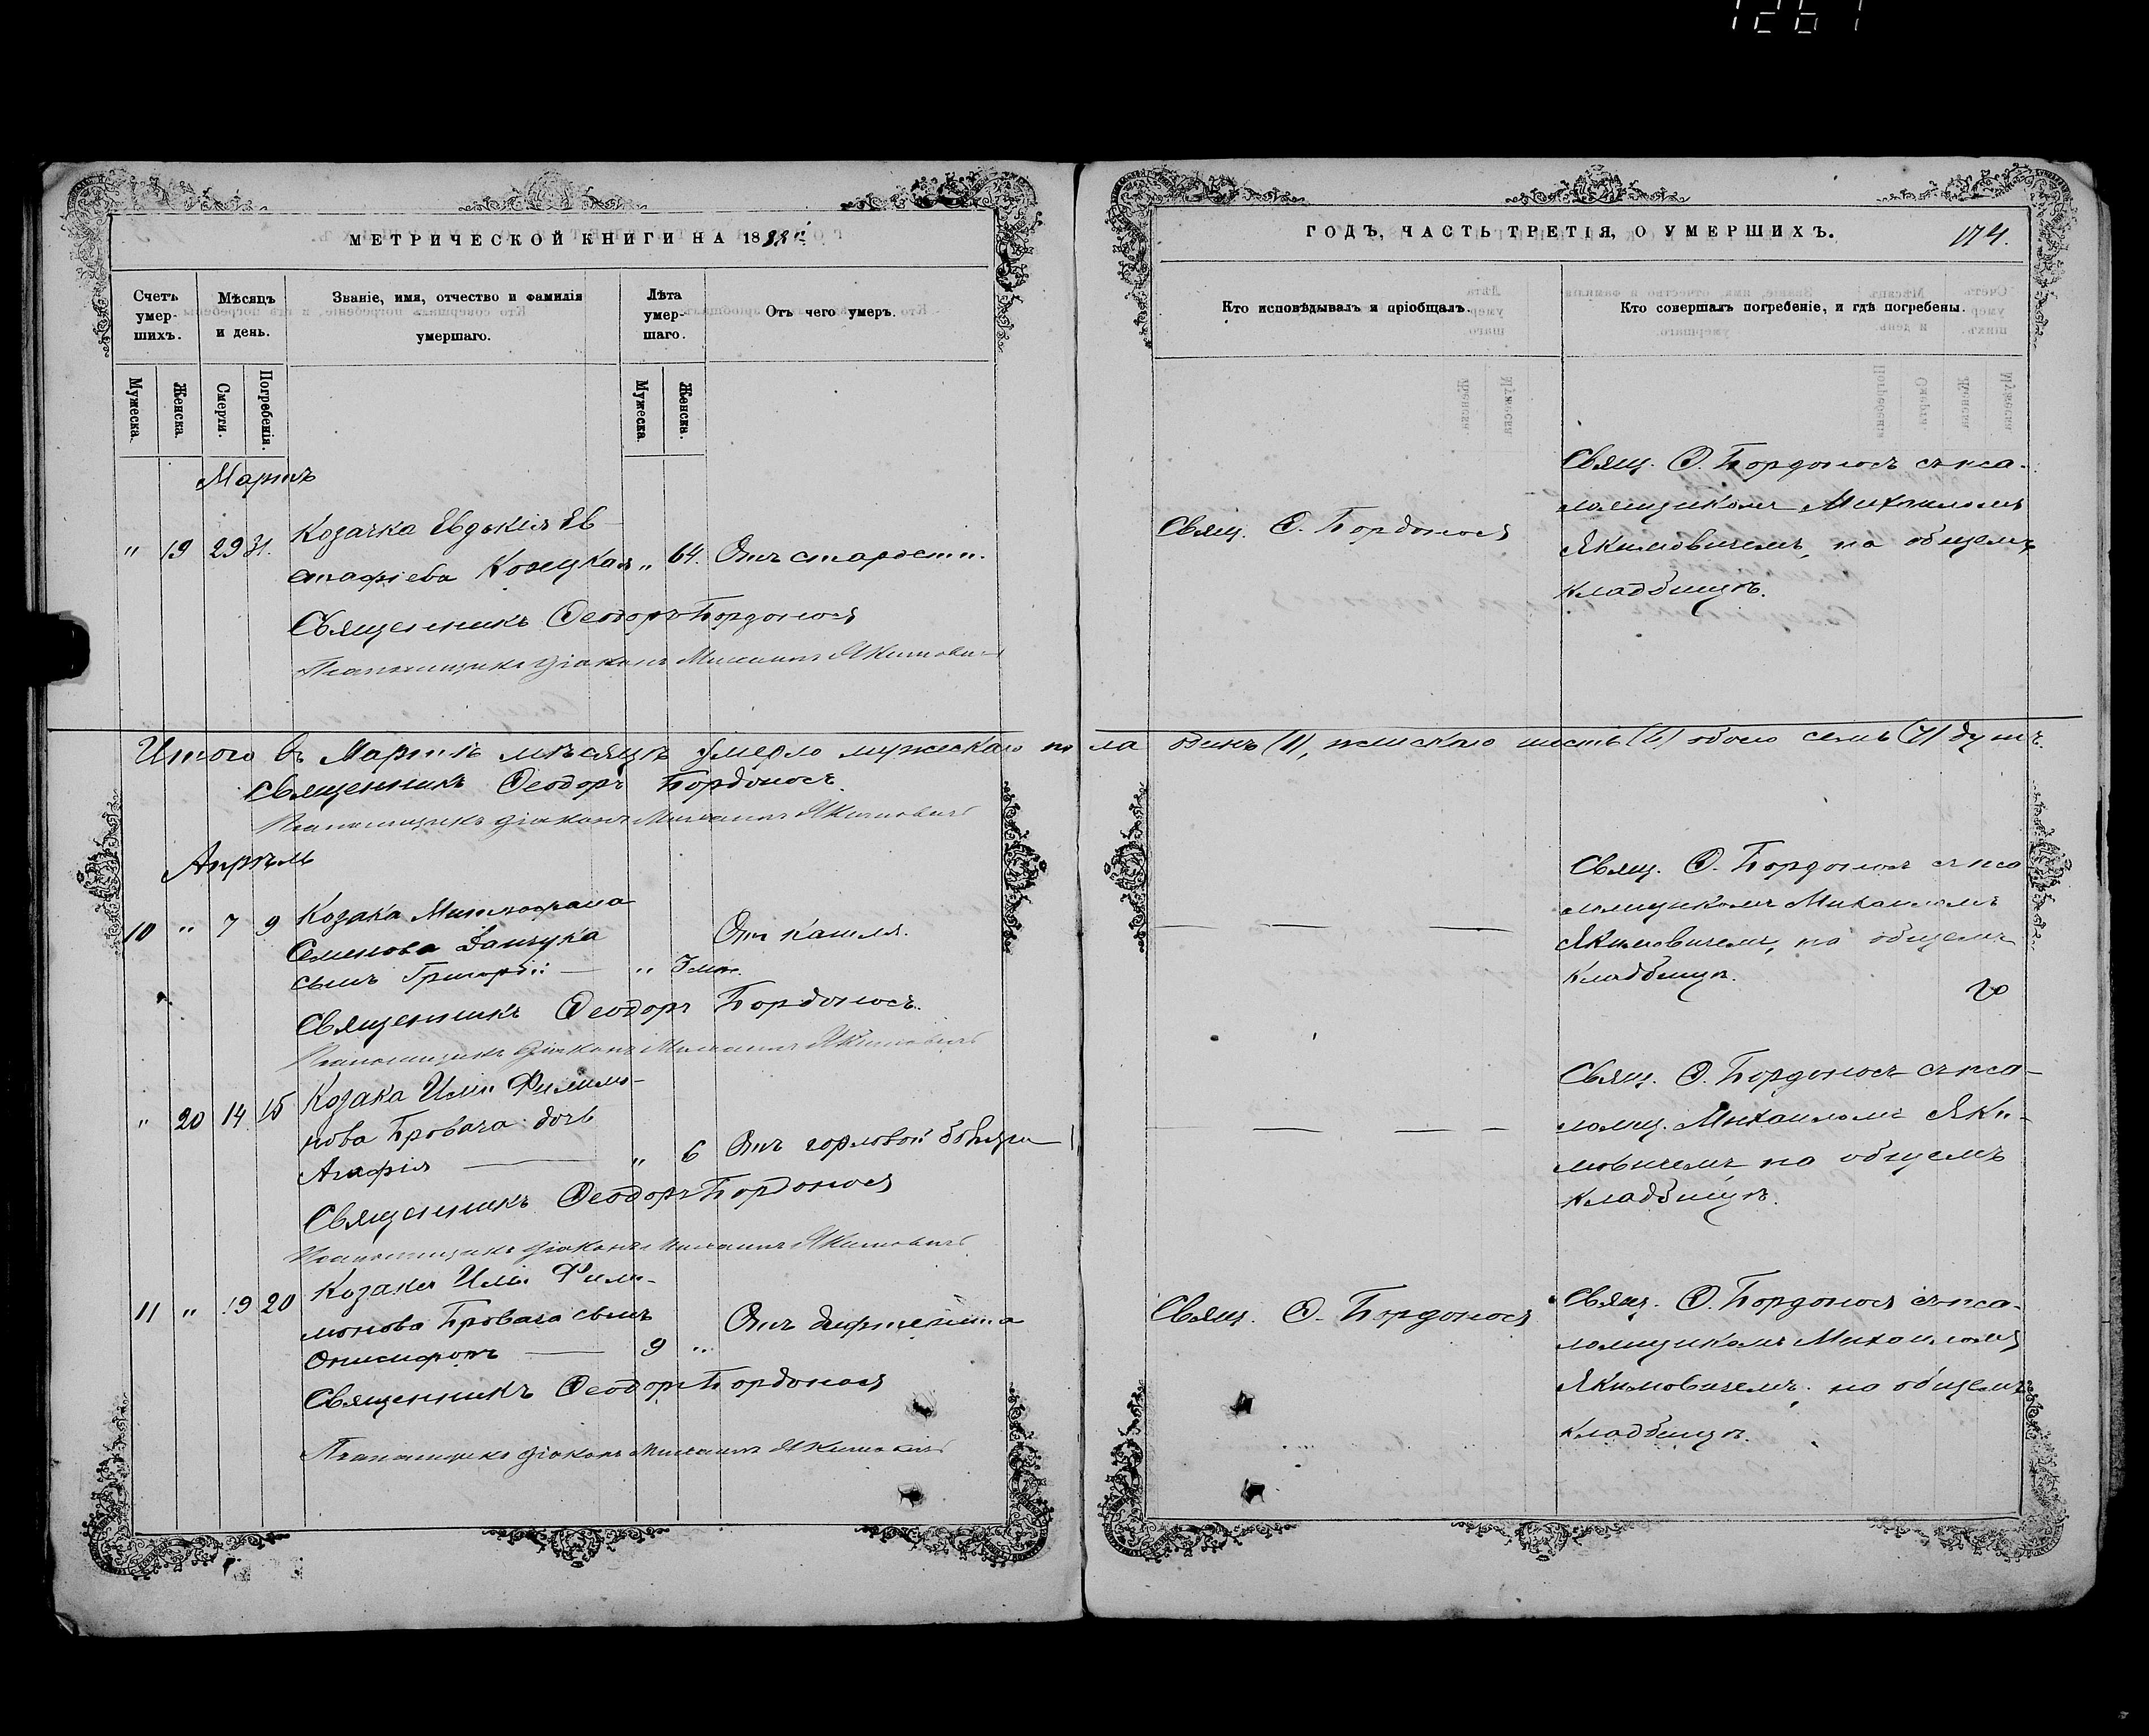 1261
МЕТРИЧЕСКОЙ КНИГИ НА 188
Счетъ умер-шихъ.
Мѣсяцъ и день.
Званіе, имя, отчество и фамилія умершаго.
Лѣта умер-шаго.
Отъ чего умеръ.
Мужеска.
Женска.
Смерти.
Погребенія.
Мужеска.
Женска.
Мартъ
" 19 29 31. Козачка Евдокія Ев-
стафіева " 64. Отъ старости.
Священникъ Ѳеодоръ Бордоносъ
Псаломщикъ діаконъ Михаилъ Якимовичъ
Итого въ Мартѣ мѣсяцѣ умерло мужескаго по
Священникъ Ѳеодоръ Бордоносъ.
Псаломщикъ діаконъ Михаилъ Якимовичъ
Апрѣль
10 " 7 9 Козака Митрофана
Семенова Отъ кашля.
сынъ Григорій — "
Священникъ Ѳеодоръ Бордоносъ.
Псаломщикъ діаконъ Михаилъ Якимовичъ
" 20 14 15 Козака Иліи Филимо-
нова Бровача дочь
Агафія — " 6 Отъ горловой болѣзни
Священникъ Ѳеодоръ Бордоносъ
Псаломщикъ діаконъ Михаилъ Якимовичъ
11 " 19 20 Козака Иліи Фили-
монова Бровача сынъ Отъ дифтерита
Онисифоръ — 9 "
Священникъ Ѳеодоръ Бордоносъ
Псаломщикъ діаконъ Михаилъ Якимовичъ
ГОДЪ, ЧАСТЬ ТРЕТІЯ, О УМЕРШИХЪ.
174.
Кто исповѣдывалъ и пріобщалъ.
Кто совершалъ погребеніе, и гдѣ погребены.
Свящ. Ѳ. Бордоносъ
Свящ. Ѳ. Бордоносъ съ пса-
ломщикомъ Михаиломъ
Якимовичемъ, на общемъ
кладбищѣ.
ла одинъ (1), женскаго шесть (6) обоего семь (7) душъ.
Свящ. Ѳ. Бордоносъ съ пса
ломщикомъ Михаиломъ
Якимовичемъ, на общемъ
кладбищѣ.
Свящ. Ѳ. Бордоносъ съ пса-
ломщ. Михаиломъ Яки-
мовичемъ на общемъ
кладбищѣ.
Свящ. Ѳ. Бордоносъ
Свящ. Ѳ. Бордоносъ съ пса-
ломщикомъ Михаиломъ
Якимовичемъ, на общемъ
кладбищѣ.